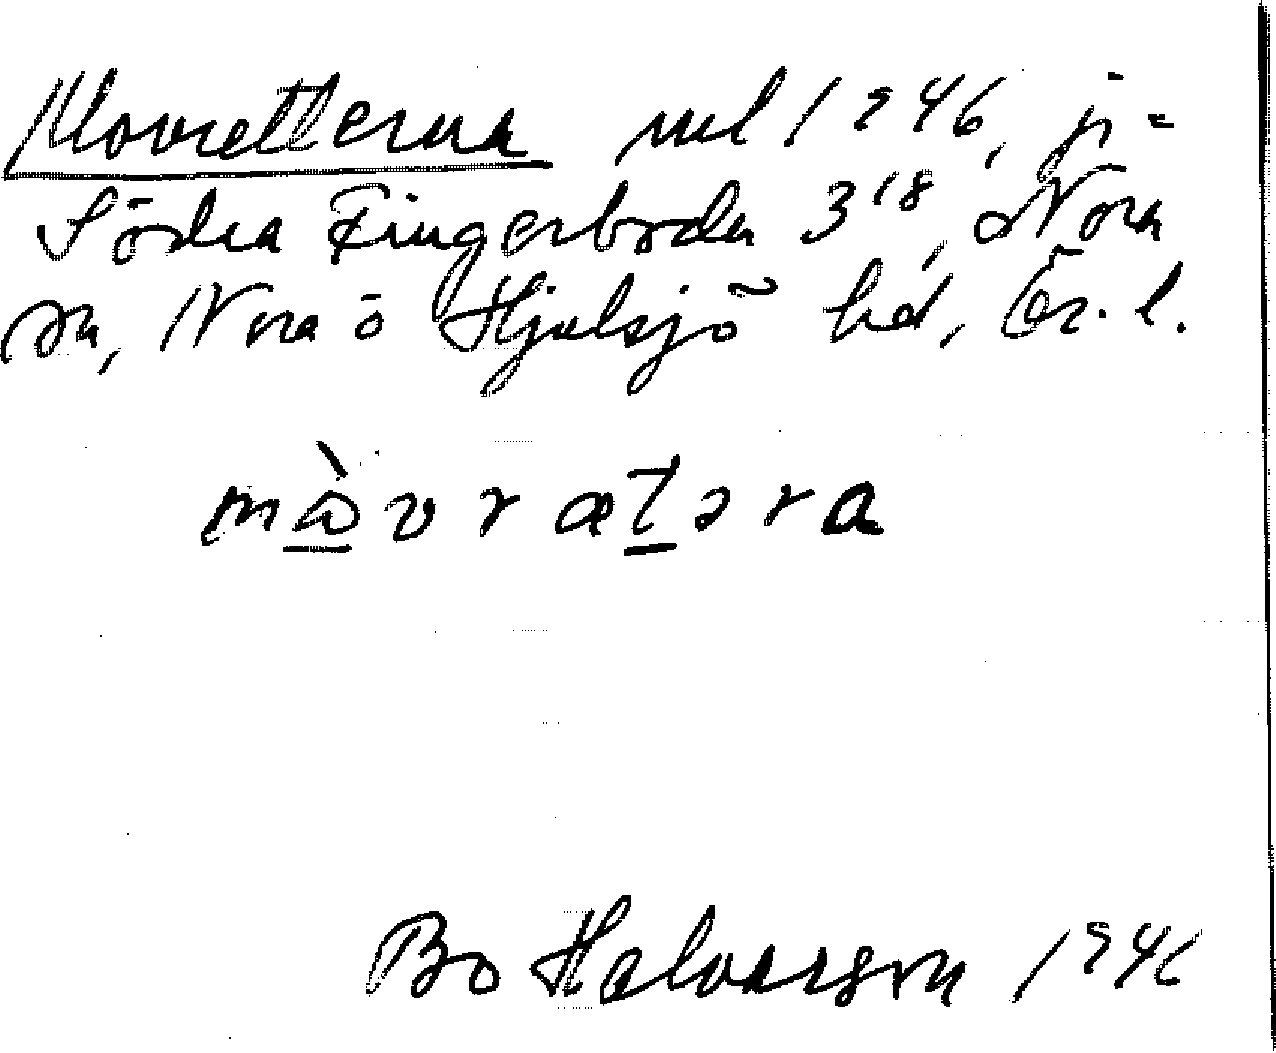 Movretterna uel 1946, ji-
Södra Fingerboda 3¹⁸, Nora
sn, Nora o Hjulsjö hd, Ör. l.
mà̱vrætərа
Bo Halvarson 1946